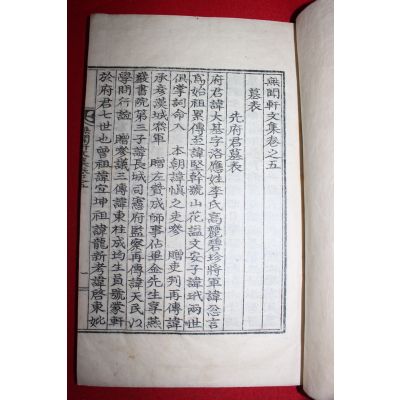 無聞軒文集卷之五
墓表
先府君墓表
府君諱大基字洛應姓李氏高麗碧珍將軍諱忩言
爲始祖累傳至諱堅幹號山花謚文安子諱玳兩世
俱掌詞命入 本朝諱愼之吏參 贈吏判再傳諱
承彦漢城樣軍 贈左贊成師事佔畢金先生享燕
叢書院第三子諱長城司憲府監察再傳諱天民以
學問行誼 贈參議三傳諱東柱成均生員號蒙軒
於府君七世也曾祖諱宜坤祖諱龍新考諱啓東妣
無聞軒文集卷之五
一